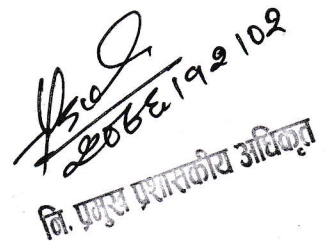 २०६६।१२।०२
नि. प्रमुख प्रशासकीय अधिकृत